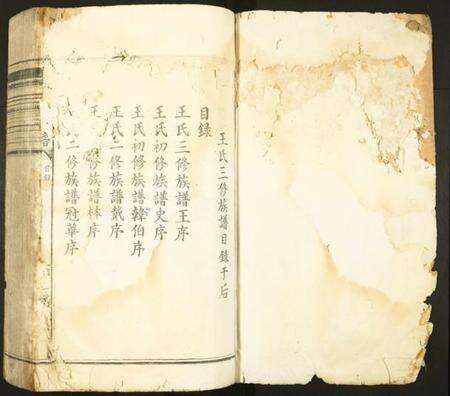 王氏三修族譜目錄于后
目錄
王氏三修族譜王序
王氏初修族譜史序
王氏初修族譜韓伯序
王氏二修族譜戴序
王 修族譜林序
二修族譜冠華序